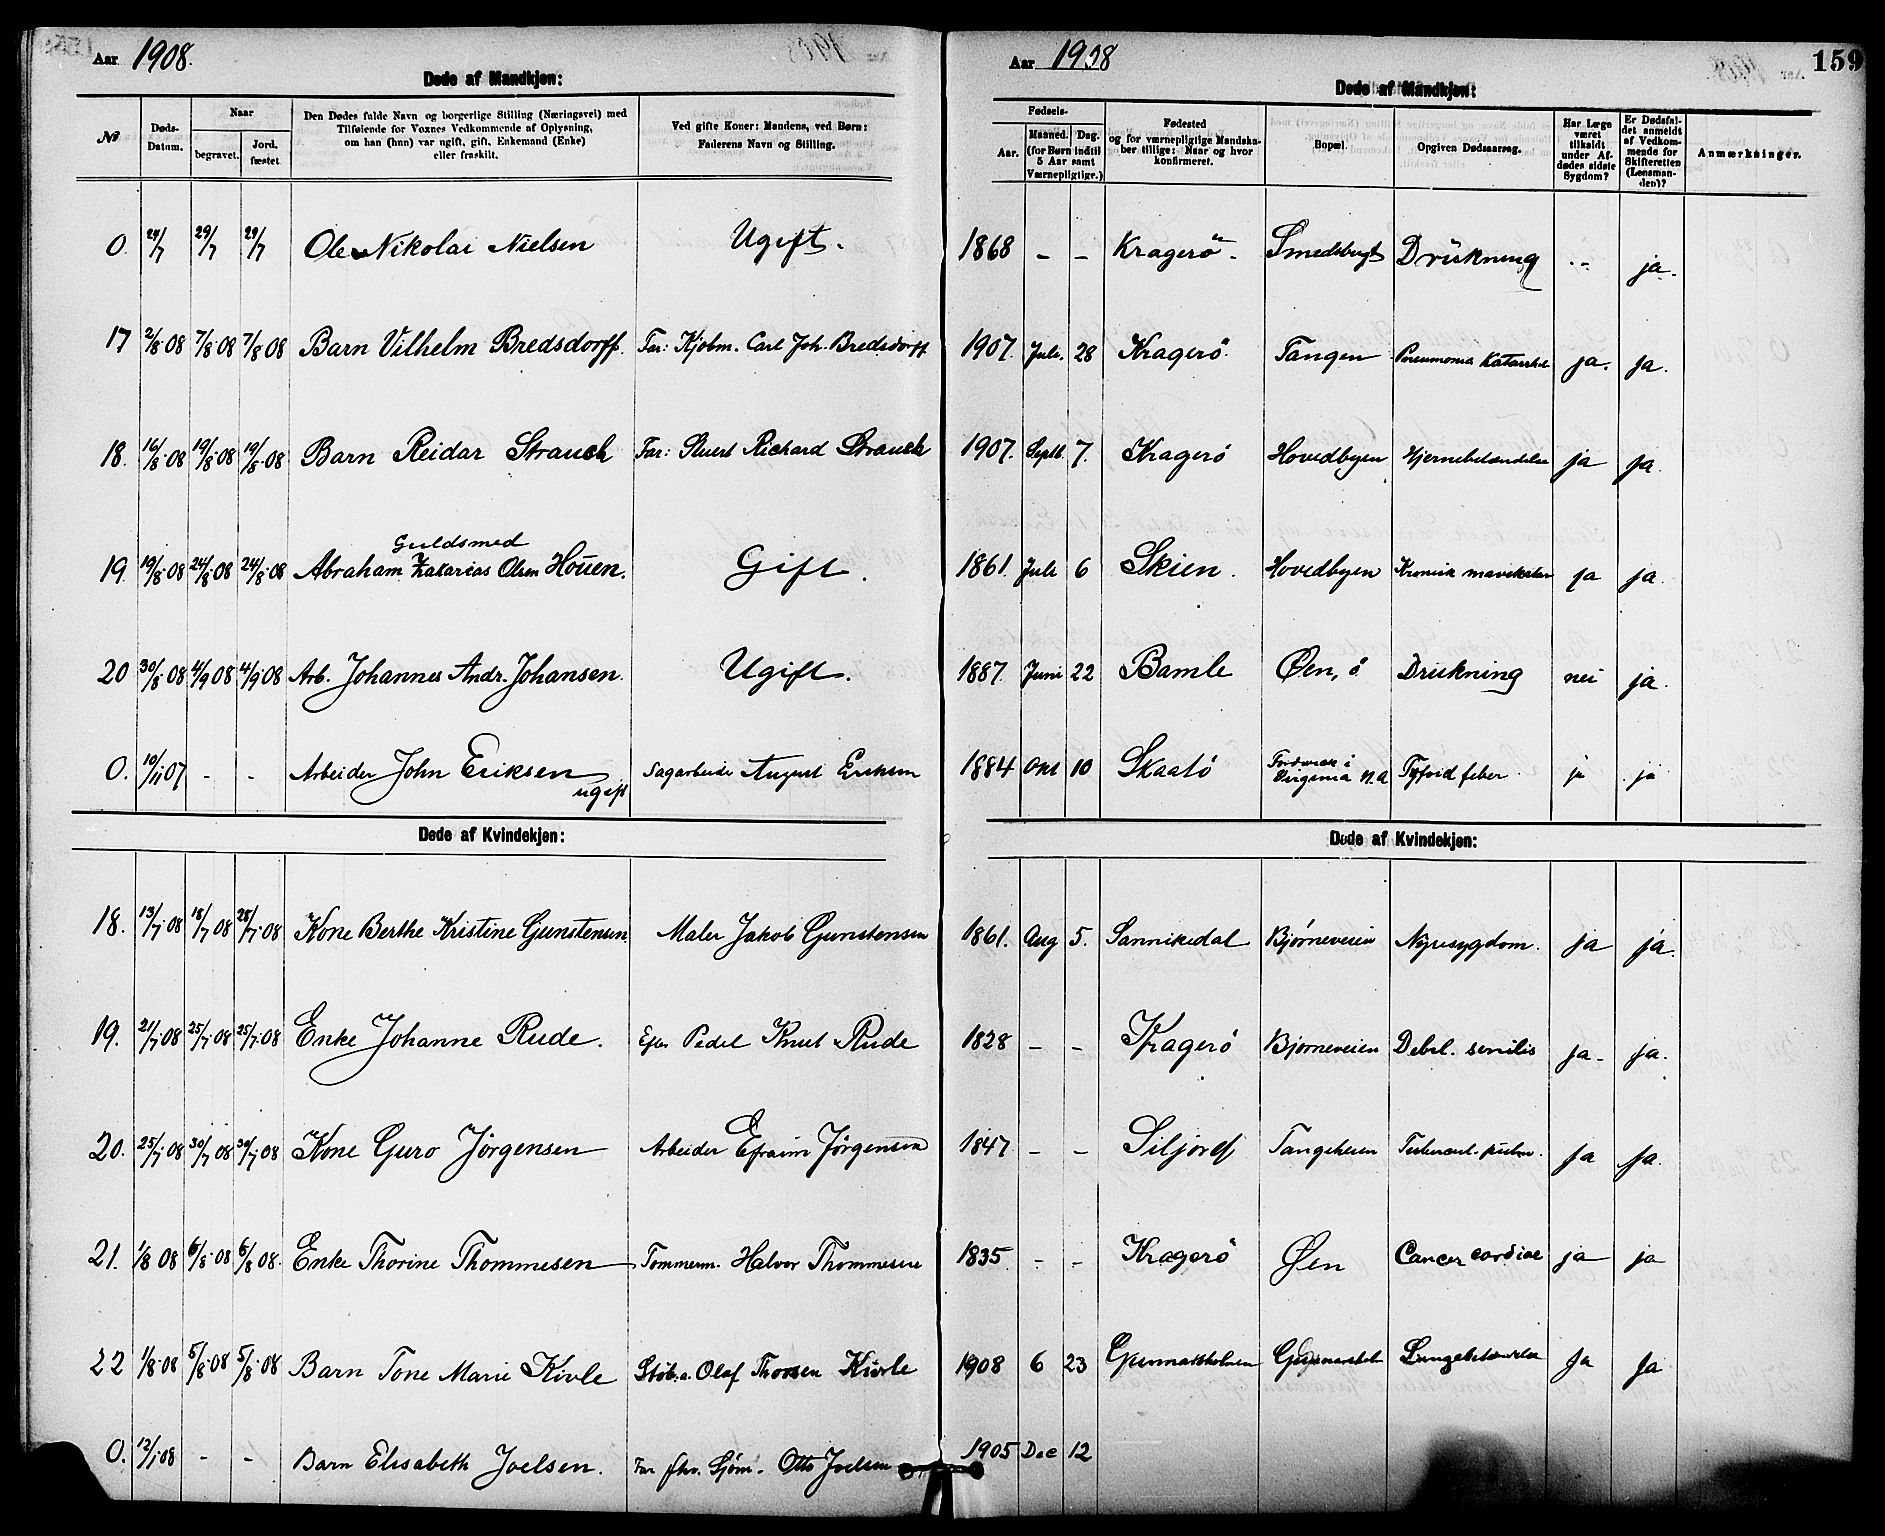 Aar 1908.
Døde af Mandkjøn:
№ Døds-Datum. Naar begravet. Jord. fæstet. Den Dødes fulde Navn og borgerlige Stilling (Næringsvei) med Tilføiende for Voxnes Vedkommende af Oplysning, om han (hun) var ugift, gift, Enkemand (Enke) eller fraskilt. Ved gifte Koner: Mandens, ved Børn: Faderens Navn og Stilling.
0. 29/7 29/7 Ole Nikolai Nielsen Ugift.
17 2/8 08 7/8 08 7/8 08 Barn Vilhelm Bredsdorff. Far: Kjøbm. Carl Joh. Bredsdorff
18. 16/8 08 19/8 08 19/8 08 Barn Reidar Strauch Far: Stuert Richard Strauch
Guldsmed
19 19/8 08 24/8 08 24/8 08 Abraham Zakarias Olsen Houen. Gift.
20 30/8 08 4/9 08 4/9 08 Arb. Johannes Andr. Johansen. Ugift.
0. 10/11 07 - - Arbeider John Eriksen Sagarbeider August Eriksen
ugift
Døde af Kvindekjøn:
18. 13/7 08 18/7 08 28/7 08 Kone Berthe Kristine Gunstensen. Maler Jakob Gunstensen
19. 21/7 08 25/7 08 25/7 08 Enke Johanne Rude. Efter Pedel Knut Rude
20. 25/7 08 30/7 08 30/7 08 Kone Guro Jörgensen Arbeider Efraim Jörgensen
21. 1/8 08 6/8 08 6/8 08. Enke Thorine Thommesen Tømmerm. Halvor Thommesen
22 1/8 08 5/8 08 5/8 08 Barn Tone Marie Kivle Støb.a. Olaf Thorsen Kivle
0. 12/1 08 - - Barn Elisabeth Joelsen. Far fhv. Sjöm. Otto Joelsen
Aar 1908
159
Døde af Mandkjøn:
Fødsels- Aar. Maaned. Dag. (for Børn indtil 5 Aar samt Værnepligtige.) Fødested og for værnepligtige Mandskaber tillige: Naar og hvor konfirmeret. Bopæl. Opgiven Dødsaarsag. Har Læge været tilkaldt under Afdødes sidste Sygdom? Er Dødsfaldet anmeldt af Vedkommende for Skifteretten (Lensmanden)? Anmærkninger.
1868 - - Kragerö - Smedsbugt Drukning - ja.
1907. Juli. 28 Kragerö. Tangen Pneumonia Katarrhal ja. ja.
1907. Septb 7. Kragerö Hovedbyen Hjernebetændelse ja ja.
1861. Juli 6 Skien. Hovedbyen Kronisk mavekatar ja ja.
1887. Juni 22 Bamle Øen, ö Drukning nei ja.
1884 Okt 10 Skaatö Virginia N.A. Tyfoid feber. ja ja
Døde af Kvindekjøn:
1861. Aug 5. Sannikedal Bjørneveien Nyresygdom. ja ja.
1828 - - Kragerö Bjørneveien Debil. senilis ja- ja.
1847 - - Siljord Tangeheien Tubercul. pulm. ja ja.
1835 - - Kragerö Øen Cancer cardiae ja ja
1908 6 23 Gunnarsholmen Gunnarshol Lungebetændelse ja ja
1905 Dec 12